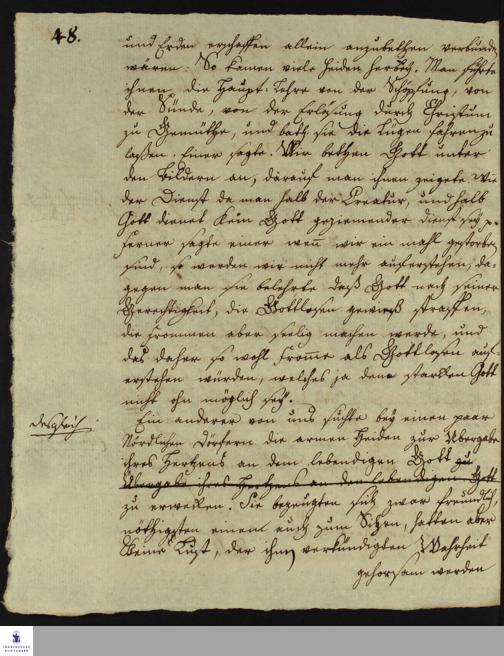 48.
und Erden erschaffen allein anzubethen verbunden
wären. So kamen viele Heiden herbey. Man führte
ihnen die Haupt-Lehre von der Schöpfung, von
der Sünde, von der Erlösung durch Christum
zu Gemüthe, und bath sie die Lügen fahren zu
laßen. Einer sagte. Wir bethen Gott unter
den Bildern an, darauf man ihnen zeigete wie
der Dienst da man halb der Creatur, und halb
Gott dienet kein Gott geziemender dienst sey
Ferner sagte einer wenn wir ein mahl gestorben
sind, so werden wir nicht mehr auferstehen, da-
gegen man sie belehrte daß Gott nach seiner
Gerechtigkeit, die Gottlosen gewiß straffen,
die frommen aber seelig machen werde, und
das daher so wohl Fromme als Gottlosen auf-
erstehen würden, welches ja dem starken Gott
nicht ohn möglich sey.
Ein anderer von uns suchte bey einen paar
Nördlichen Dörfern die armen Heiden zur Übergabe
ihres Hertzens an dem lebendigen Gott zu
Übergabe ihres Hertzens an den lebendigen Gott
zu erweken. Sie bezeugten sich zwar freundlich,
nöthigsten einem auch zum Sitzen, hatten aber
Keine Lust, der ihnen verkündigten Wahrheit
gehorsam werden
FRANCKESCHE
STIFTUNGEN